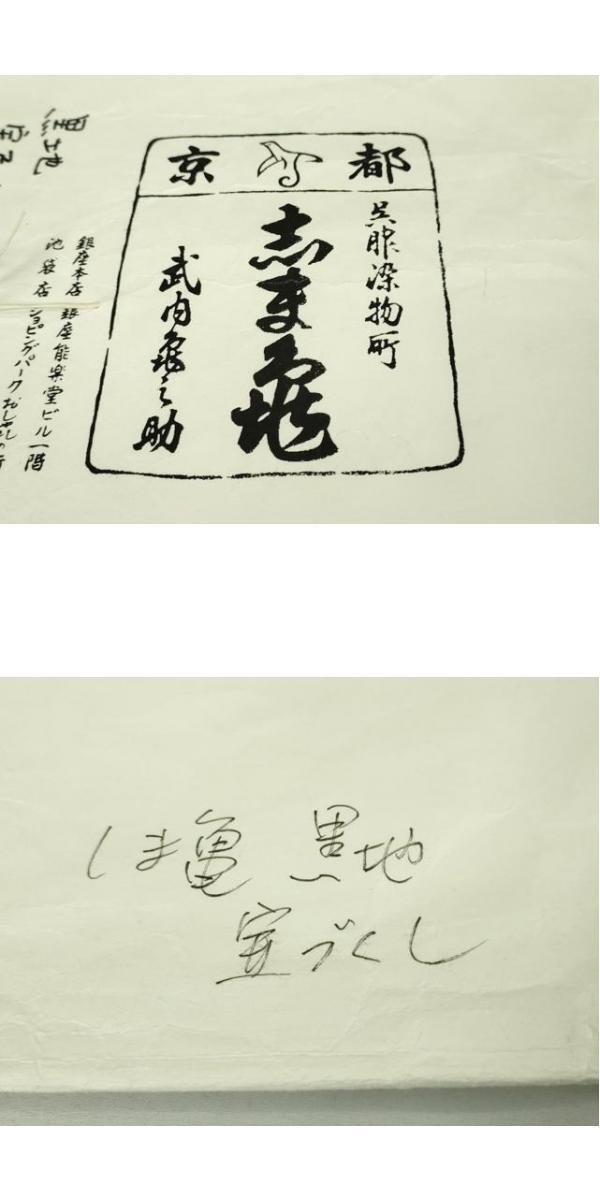 京都
呉服染物所
志ま亀
武内亀之助
銀座本店 銀座能楽堂ビル一階
池袋店 ショピングパークおしゃれ
黒地
しま亀 黒地
宝づくし